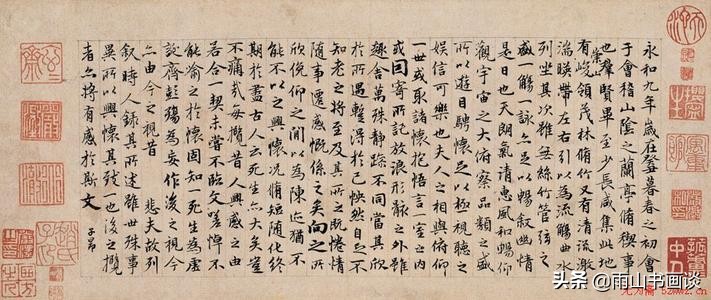 永和九年歲在癸丑暮春之初會
于會稽山陰之蘭亭脩稧事
也群賢畢至少長咸集此地
有崇山峻領茂林脩竹又有清流激
湍暎帶左右引以為流觴曲水
列坐其次雖無絲竹管弦之
盛一觴一詠亦足以暢叙幽情
是日也天朗氣清惠風和暢仰
觀宇宙之大俯察品類之盛
所以遊目騁懷足以極視聽之
娛信可樂也夫人之相與俯仰
一世或取諸懷抱悟言一室之內
或因寄所託放浪形骸之外雖
趣舍萬殊靜躁不同當其欣
於所遇暫得於己怏然自足不
知老之將至及其所之既惓情
隨事遷感慨係之矣向之所
欣俛仰之閒以為陳迹猶不
能不以之興懷況脩短隨化終
期於盡古人云死生亦大矣豈
不痛哉每攬昔人興感之由
若合一契未嘗不臨文嗟悼不
能喻之於懷固知一死生為虛
誕齊彭殤為妄作後之視今
亦由今之視昔 悲夫故列
叙時人錄其所述雖世殊事
異所以興懷其致一也後之攬
者亦將有感於斯文
子昂
頭條@雨山书画谈